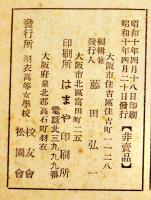 昭和十年四月十八日印刷
昭和十年四月二十日發行
【非賣品】
大阪市住吉區住吉町一一二八
編輯兼
發行人
藤田弘一
大阪市北區富田町二五
印刷所 はまや印刷所
電話北三九九九番
大阪府泉北郡高石町羽衣
發行所 羽衣高等女學校
校友會
松園會